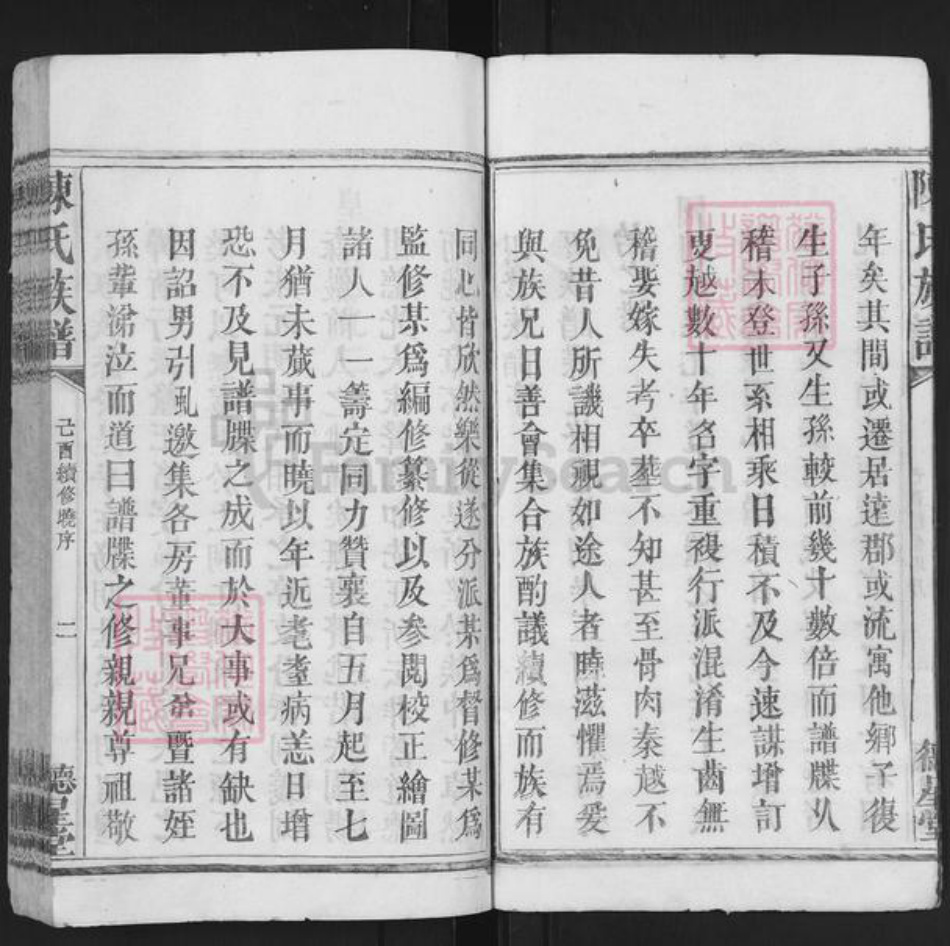 年矣其間或遷居遠郡或流寓他鄉子復
生子孫又生孫較前幾十數倍而譜牒久
稽未登世系相乘日積不及今速謀增訂
更越數十年名字重複行派混淆生齒無
稽娶嫁失考卒塟不知甚至骨肉秦越不
免昔人所譏相視如途人者曉滋懼焉爰
與族兄日善會集合族酌議續修而族有
同心皆欣然樂從遂分派某爲督修某爲
監修某爲編修纂修以及參閱校正繪圖
諸人一一籌定同力贊襄自五月起至七
月猶未蕆事而曉以年近耄耋病恙日增
恐不及見譜牒之成而於大事或有缺也
因詔男引虬邀集各房董事兄爺暨諸姪
孫輩涕泣而道曰譜牒之修親親尊祖敬
陳氏族譜
己酉續修曉序
二
德星堂
FamilySearch